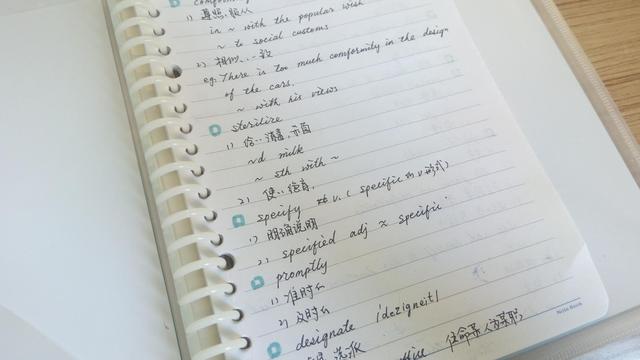 conformity
1) 遵照,顺从
in ~ with the popular wish
~ to social customs
2) 相似,一致
eg. There is too much comformity in the design
of the cars.
~ with his views
sterilize
1) 给…消毒,杀菌
~d milk
~ sth with ~
2) 使…绝育,
specify vt. v. ( specific 的 v 形式)
1) 明确说明
2) specified adj ≈ specific
promptly
1) 准时地
2) 及时地
designate /dezigneit/
任命某人为某职
Note Book